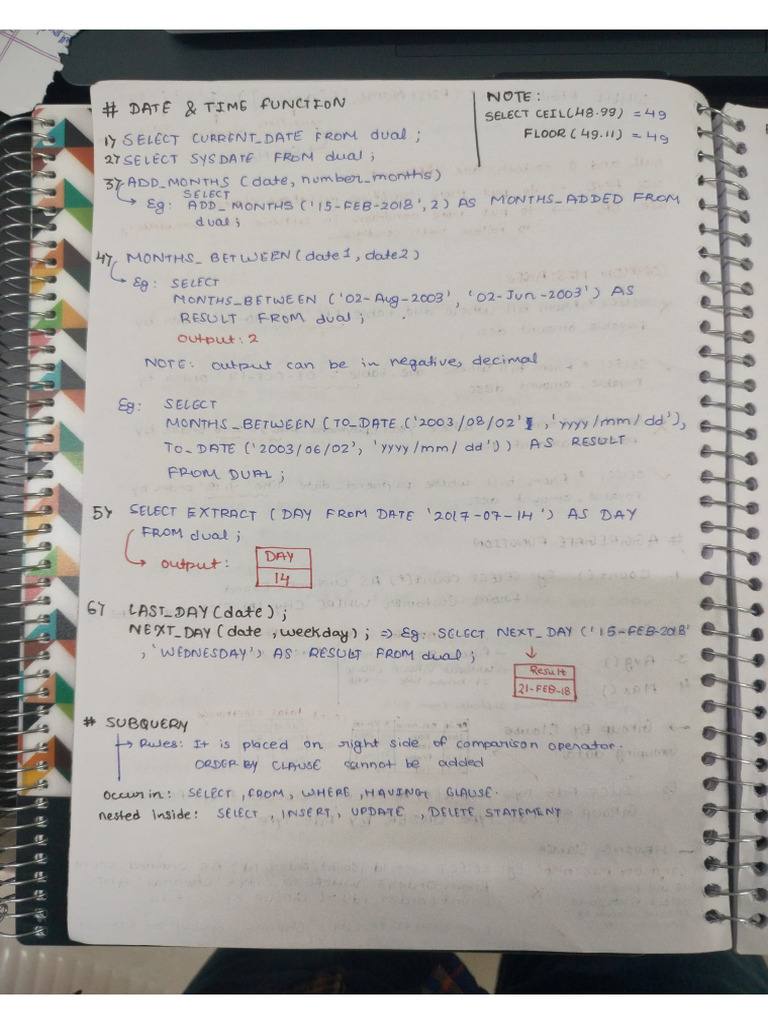 # DATE & TIME FUNCTION
NOTE:
SELECT CEIL(48.99) = 49
FLOOR(49.11) = 49
1) SELECT CURRENT_DATE FROM dual;
2) SELECT SYSDATE FROM dual;
3) ADD_MONTHS (date, number_months)
SELECT
Eg: ADD_MONTHS('15-FEB-2018',2) AS MONTHS_ADDED FROM
dual;
4) MONTHS_BETWEEN(date1, date2)
Eg: SELECT
MONTHS_BETWEEN ('02-Aug-2003', '02-Jun-2003') AS
RESULT FROM dual;
output: 2
NOTE: output can be in negative, decimal
Eg: SELECT
MONTHS_BETWEEN (TO_DATE ('2003/08/02' , 'yyyy/mm/dd'),
TO_DATE ('2003/06/02', 'yyyy/mm/dd')) AS RESULT
FROM DUAL;
5) SELECT EXTRACT (DAY FROM DATE '2017-07-14') AS DAY
FROM dual;
→ output:
DAY
14
6) LAST_DAY(date);
NEXT_DAY(date, weekday); => Eg: SELECT NEXT_DAY ('15-FEB-2018'
, 'WEDNESDAY') AS RESULT FROM dual;
↓
Result
21-FEB-18
# SUBQUERY
→ Rules: It is placed on right side of comparison operator.
ORDER BY CLAUSE cannot be added
occur in: SELECT, FROM, WHERE, HAVING CLAUSE.
nested inside: SELECT, INSERT, UPDATE, DELETE STATEMENT